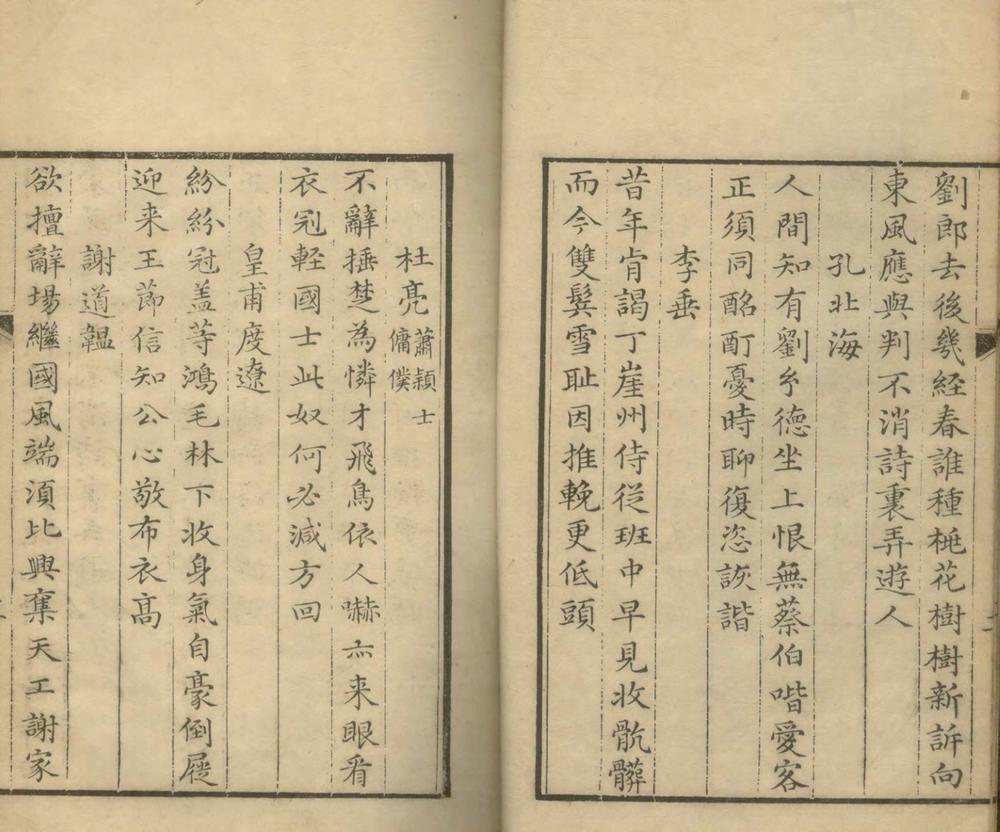 劉郎去後幾経春誰種桃花樹樹新訴向
東風應與判不消詩裏弄遊人
孔北海
人間知有劉玄德坐上恨無蔡伯喈愛客
正須同酩酊憂時聊復恣詼諧
李垂
昔年肯謁丁崖州侍從班中早見收骯髒
而今雙鬓雪耻因推輓更低頭
杜亮蕭頴士傭僕
不辭捶楚為憐才飛鳥依人嚇亦来眼看
衣冠軽國士此奴何必減方回
皇甫度遼
紛紛冠盖等鴻毛林下收身氣自豪倒屣
迎来王莭信知公心敬布衣髙
謝道韞
欲擅辭場繼國風端湏比興奪天工謝家